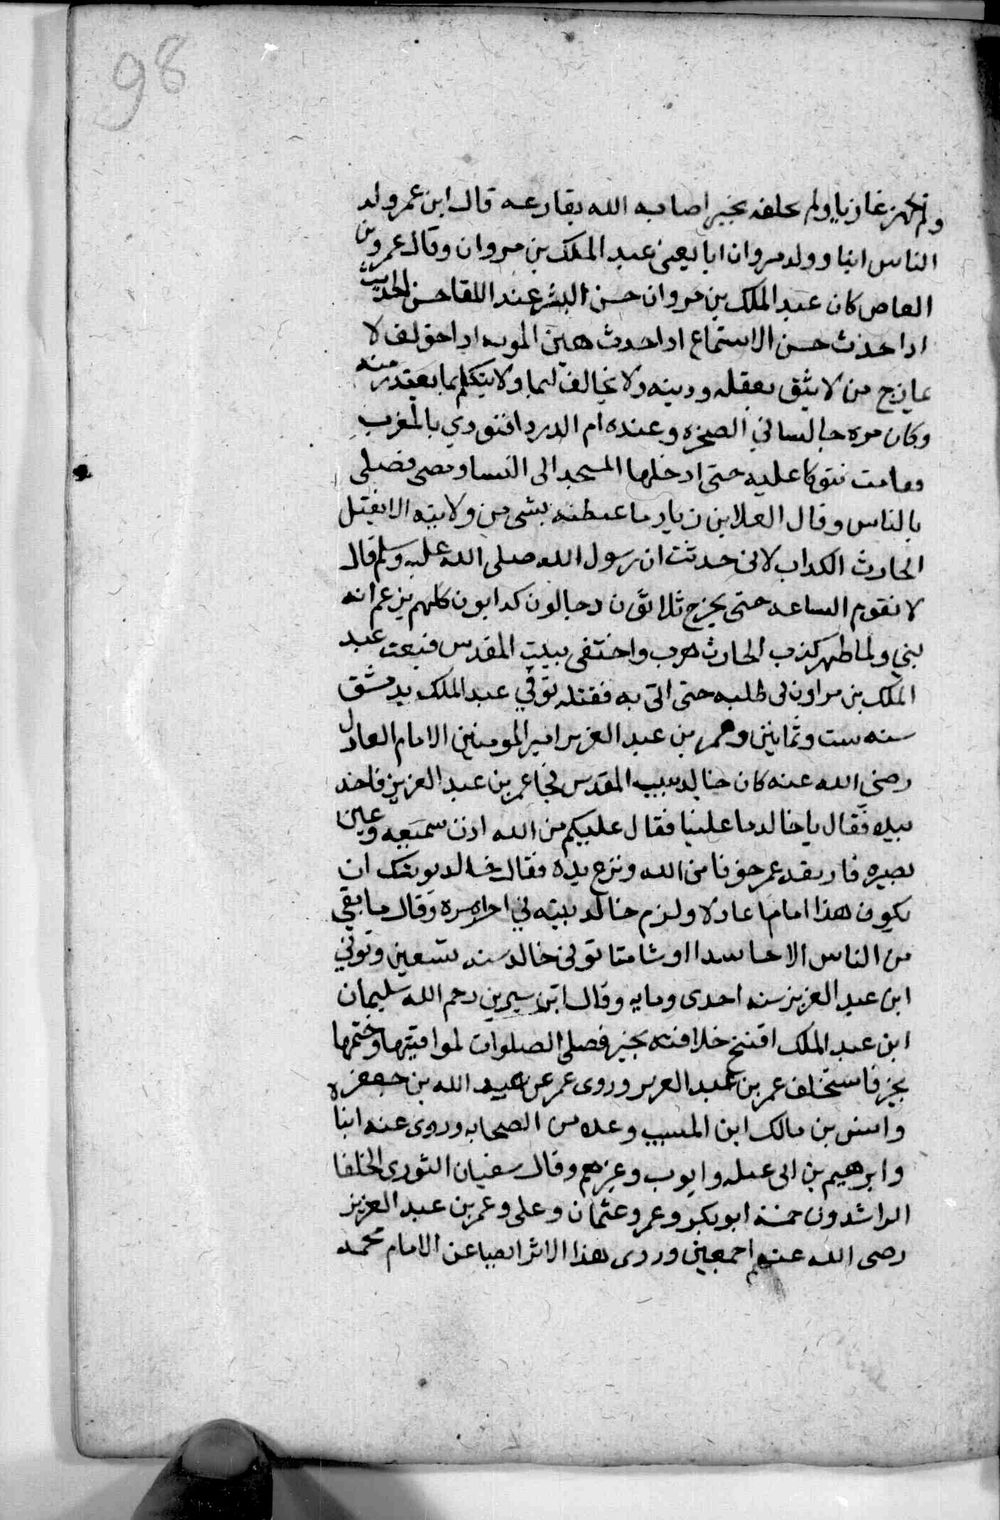 98
ولم يجهز غازيا ولم يخلفه بخير اصابه الله بقارعه قال ابن عمر ولد
الناس ابنا وولد مروان ابا يعني عبد الملك بن مروان وقال عمرو بن
العاص كان عبد الملك بن مروان حسن البشر عند اللقا حسن الحديث
اذا حدث حسن الاستماع اذا حدث هين الموبه اذا خولف لا
يمازح من لا يثق بعقله ودينه ولا يخالف ليما ولا يتكلم بما يعتذر منه
وكان مره جالسا في الصخره وعنده ام الدردا فنودي بالمغرب
فقامت تتوكا عليه حتى ادخلها المسجد الى النسا ومضى فصلى
بالناس وقال العلا بن زياد ما غبطته بشي من ولايته الا بقتل
الحارث الكداب لاني حدثت ان رسول الله صلى الله عليه وسلم قال
لا تقوم الساعه حتى يخرج ثلاثون دجالون كدابون كلهم يزعم انه
نبي ولما ظهر كذب الحارث هرب واختفى ببيت المقدس فبعث عبد
الملك بن مراون في طلبه حتى اتى به فقتله توفي عبد الملك بدمشق
سنه ست وثمانين وعمر بن عبد العزيز امير المومنين الامام العادل
رضي الله عنه كان خالد ببيت المقدس فجا عمر بن عبد العزيز فاخد
بيده فقال يا خالد ما علينا فقال عليكم من الله اذن سميعه وعين
بصيره فارتعد عمر خوفا من الله ونزع يده فقال خالد يوشك ان
يكون هذا اماما عادلا ولزم خالد بيته في اخر امره وقال ما بقي
من الناس الا حاسدا او شامتا توفي خالد سنه تسعين وتوفي
ابن عبد العزيز سنه احدى ومايه وقال ابن سيرين رحم الله سليمان
ابن عبد الملك افتتح خلافته بخير فصلى الصلوات لمواقيتها وختمها
بخير فاستخلف عمر بن عبد العزيز وروى عمر عن عبد الله بن جعفر
وانس بن مالك ابن المسيب وعده من الصحابه وروى عنه ابنا
وابرهيم بن ابي عبله وايوب وغيرهم وقال سفيان الثوري الخلفا
الراشدون خمسه ابوبكر وعمر وعثمان وعلي وعمر بن عبد العزيز
رضى الله عنهم اجمعين وروى هذا الاثر ايضا عن الامام محمد